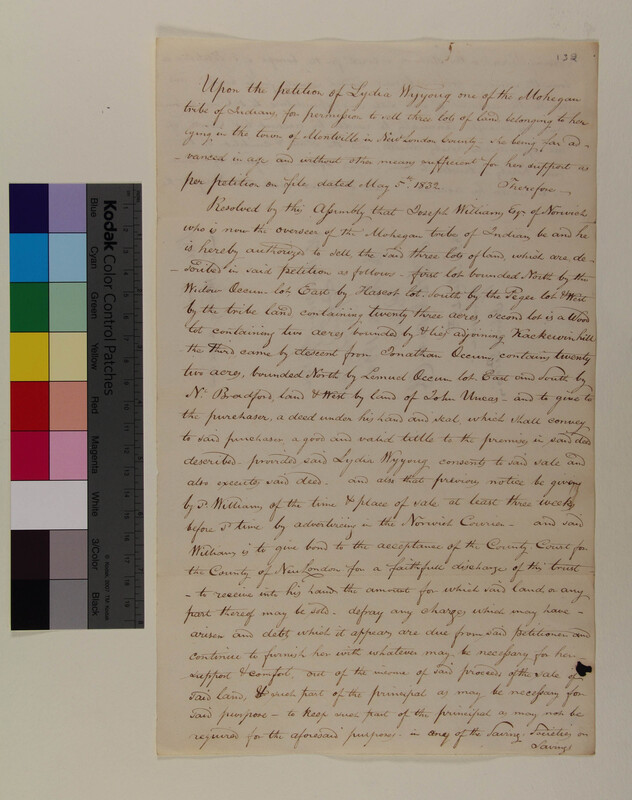 132
Upon the petition of Lydia Wyyoug one of the Mohegan
tribe of Indians, for permission to sell three lots of land belonging to her
lying in the town of Montville in New London County. she being far ad-
-vanced in age and without other means sufficient for her support as
per petition on file dated May 5th 1832. Therefore
Resolved by this Assembly that Joseph Williams Esqr of Norwich
who is now the overseer of the Mohegan tribe of Indians be and he
is hereby authorized to sell the said three lots of land, which are, de-
-scribed in said petition as follows - first lot bounded North by the
Widow Occum lot East by Hascot lot. South by the Pegee lot & West
by the tribe land containing twenty three acres, second lot is a Wood
lot containing two acres bounded by & lies adjoining Wackewunhill
the third came by descent from Jonathan Occum, contains twenty
two acres, bounded North by Lemuel Occum lot East and South by
N. Bradford, land & West by land of John Uncas - and to give to
the purchaser, a deed under his hand and seal which shall convey
to said purchaser a good and valid tittle to the premises in said deed
described - provided said Lydia Wyyoug consents to said sale and
also execute said deed - and also that previous notice be given
by sd. Williams, of the time & place of sale at least three weeks
before sd time by advertiseing in the Norwich Courier - and said
Williams is to give bond to the acceptance of the County Court for
the County of New London for a faithfull discharge of this trust
- to receive into his hand, the amount for which said land, or any
part thereof may be sold - defray any charges which may have
arisen and debt, which it appears are due from said Petitioner and
continue to furnish her with whatever may be necessary for her
support & comfort, out of the income of said proceeds of the sale of
said land, & such part of the principal as may be necessary for
said purpose - to keep such part of the principal as may not be
required for the aforesaid purposes - in any of the Saving Societies or
Savings
Kodak Color Control Patches
Blue
Cyan
Green
Yellow
Red
Magenta
White
3/Color
Black